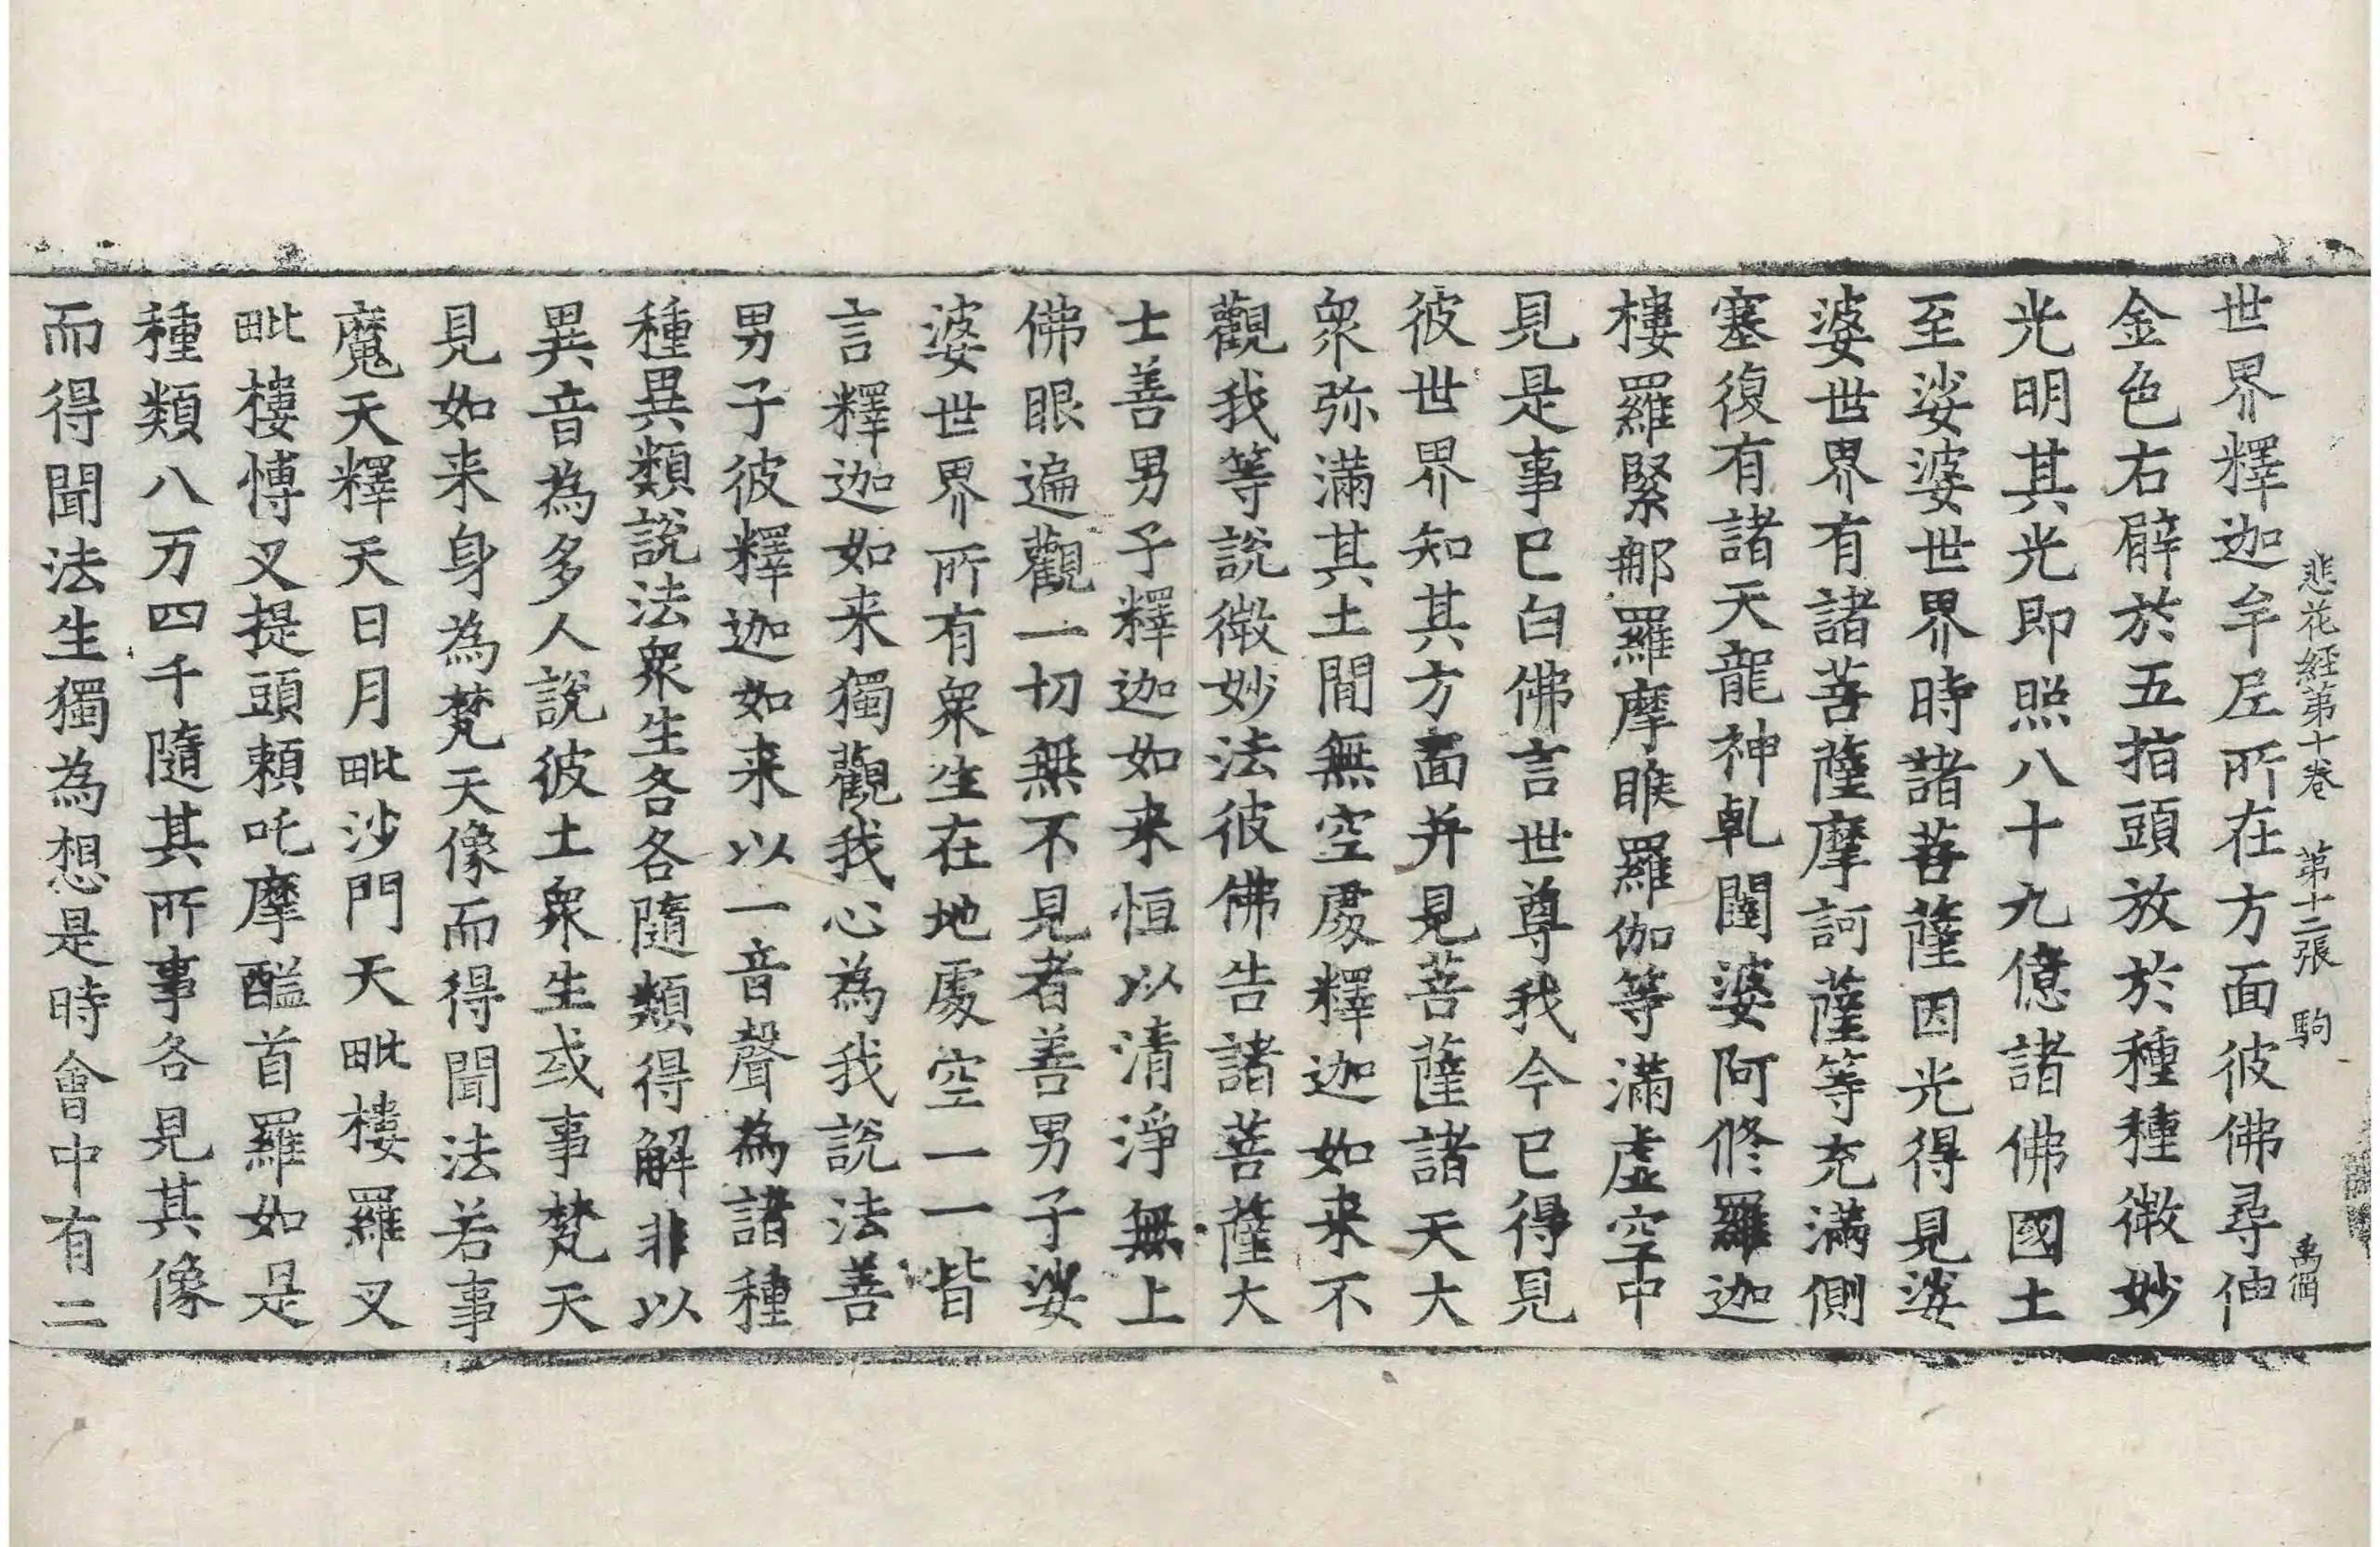 悲花經第十卷 第十二張 駒
世界釋迦牟尼所在方面彼佛尋伸
金色右臂於五指頭放於種種微妙
光明其光即照八十九億諸佛國土
至娑婆世界時諸菩薩因光得見娑
婆世界有諸菩薩摩訶薩等充滿側
塞復有諸天龍神乹闥婆阿修羅迦
樓羅緊那羅摩睺羅伽等滿虛空中
見是事已白佛言世尊我今已得見
彼世界知其方面并見菩薩諸天大
衆弥滿其土間無空處釋迦如来不
觀我等說微妙法彼佛告諸菩薩大
士善男子釋迦如来恒以清淨無上
佛眼遍觀一切無不見者善男子娑
婆世界所有衆生在地處空一一皆
言釋迦如来獨觀我心為我說法善
男子彼釋迦如来以一音聲為諸種
種異類說法衆生各各隨類得解非以
異音為多人說彼土衆生或事梵天
見如来身為梵天像而得聞法若事
魔天釋天日月毗沙門天毗樓羅叉
毗樓愽叉提頭頼吒摩醯首羅如是
種類八万四千隨其所事各見其像
而得聞法生獨為想是時會中有二